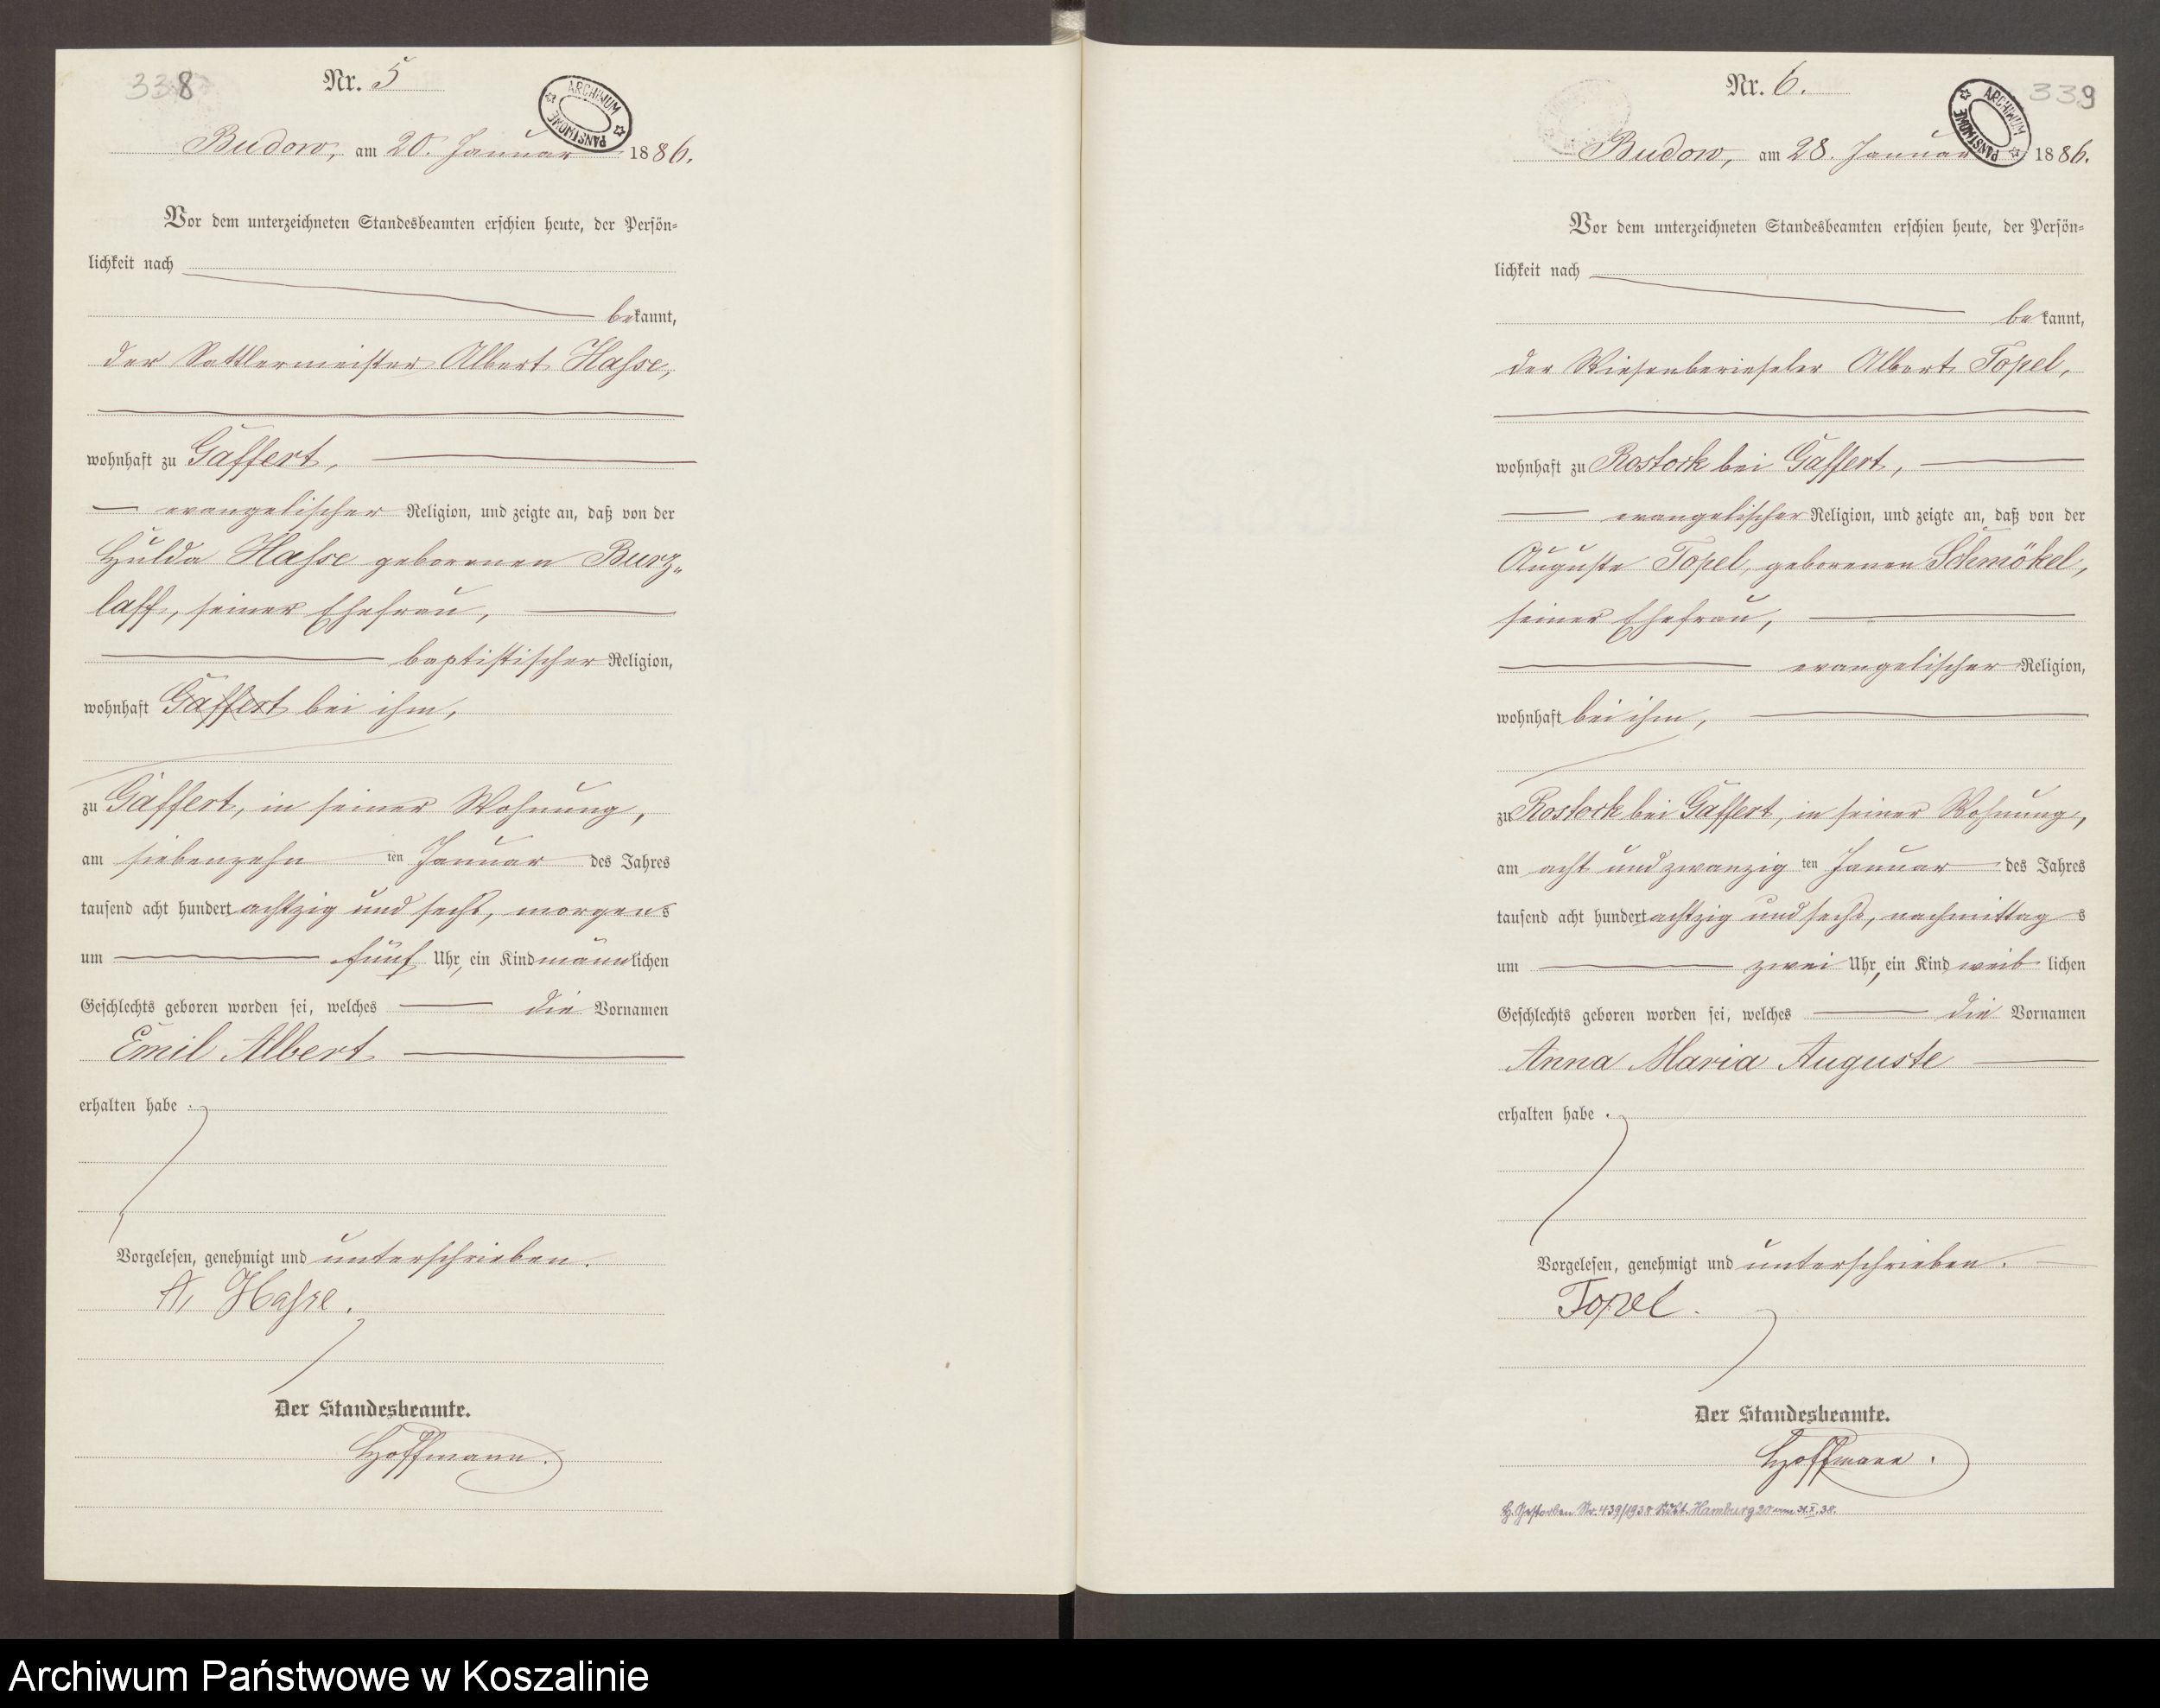 338
Nr. 5
ARCHIWUM PAŃSTWOWE
Budow, am 20. Januar 1886.
Vor dem unterzeichneten Standesbeamten erschien heute, der Persön-
lichkeit nach
bekannt,
der Sattlermeister Albert Hasse,
wohnhaft zu Gaffert,
evangelischer Religion, und zeigte an, daß von der
Hulda Hasse geborenen Burz-
laff, seiner Ehefrau,
baptistischer Religion,
wohnhaft Gaffert bei ihm,
zu Gaffert, in seiner Wohnung,
am siebenzehn ten Januar des Jahres
tausend acht hundert achtzig und sechs, morgens
um fünf Uhr, ein Kind männlichen
Geschlechts geboren worden sei, welches die Vornamen
Emil Albert
erhalten habe.
Vorgelesen, genehmigt und unterschrieben.
A. Hasse.
Der Standesbeamte.
Hoffmann.
Nr. 6.
339
ARCHIWUM PAŃSTWOWE
Budow, am 28. Januar 1886.
Vor dem unterzeichneten Standesbeamten erschien heute, der Persön-
lichkeit nach
bekannt,
der Wiesenberieseler Albert Topel,
wohnhaft zu Rostock bei Gaffert,
evangelischer Religion, und zeigte an, daß von der
Auguste Topel, geborenen Schmökel,
seiner Ehefrau,
evangelischer Religion,
wohnhaft bei ihm,
zu Rostock bei Gaffert, in seiner Wohnung,
am acht und zwanzig ten Januar des Jahres
tausend acht hundert achtzig und sechs, nachmittags
um zwei Uhr, ein Kind weiblichen
Geschlechts geboren worden sei, welches die Vornamen
Anna Maria Auguste
erhalten habe.
Vorgelesen, genehmigt und unterschrieben.
Topel.
Der Standesbeamte.
Hoffmann.
Gestorben Nr. 439/1938 Hamburg 20 am 31.X.38.
Archiwum Państwowe w Koszalinie